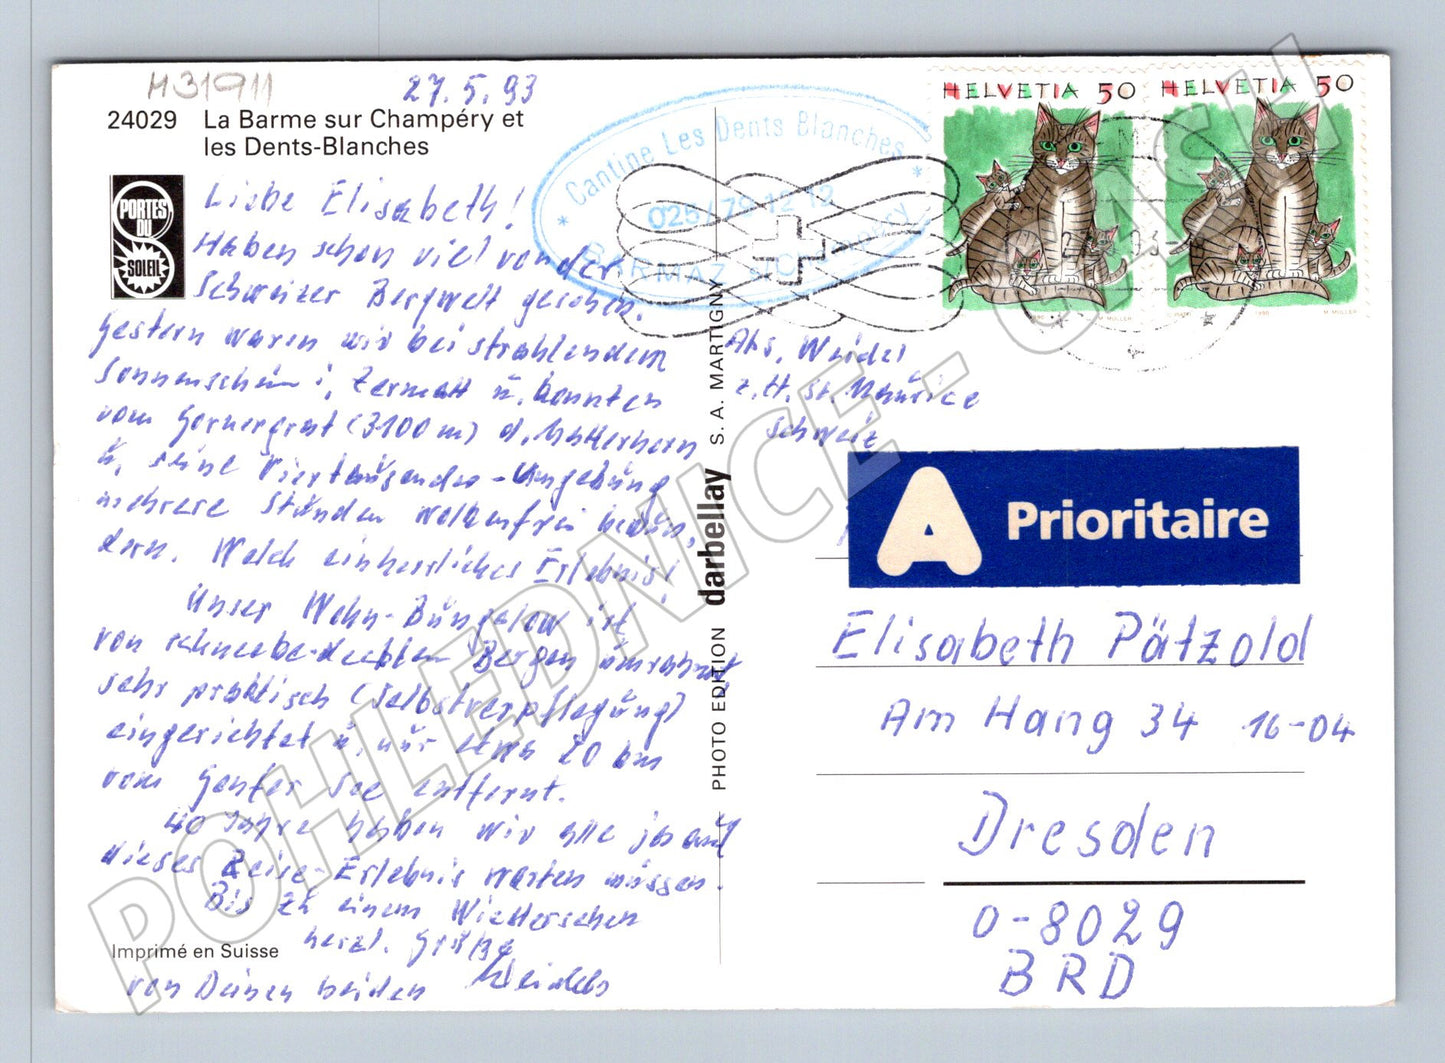 H31911
27.5.93
24029 La Barme sur Champéry et
les Dents-Blanches
PORTES
DU
SOLEIL
Liebe Elisabeth!
Haben schon viel von der
Schweizer Bergwelt gesehen.
Gestern waren wir bei strahlendem
Sonnenschein i, Zermatt u. konnten
vom Gornergrat (3100 m) d. Matterhorn
u. seine Viertausender-Umgebung
mehrere Stunden wolkenfrei bewun,
dern. Welch einherrliches Erlebnis!
Unser Wohn-Bungalow ist
von schneebedeckten Bergen umrahmt
sehr praktisch (Selbstverpflegung)
eingerichtet u. nur etwa 20 km
vom Genfer See entfernt.
40 Jahre haben wir alle ja auf
dieses Reise-Erlebnis warten müssen.
Bis zu einem Wiedersehen
herzl. Grüße
von Deinen beiden Weidels
Imprimé en Suisse
PHOTO EDITION darbellay S. A. MARTIGNY
* Cantine Les Dents Blanches *
025/79 12 12
BARMAZ
HELVETIA 50
HELVETIA 50
M. MÜLLER
M. MÜLLER
1990
Abs. Weidel
z. Zt. St. Maurice
Schweiz
A Prioritaire
Elisabeth Pätzold
Am Hang 34 16-04
Dresden
O-8029
BRD
POHLEDNICE - CASH